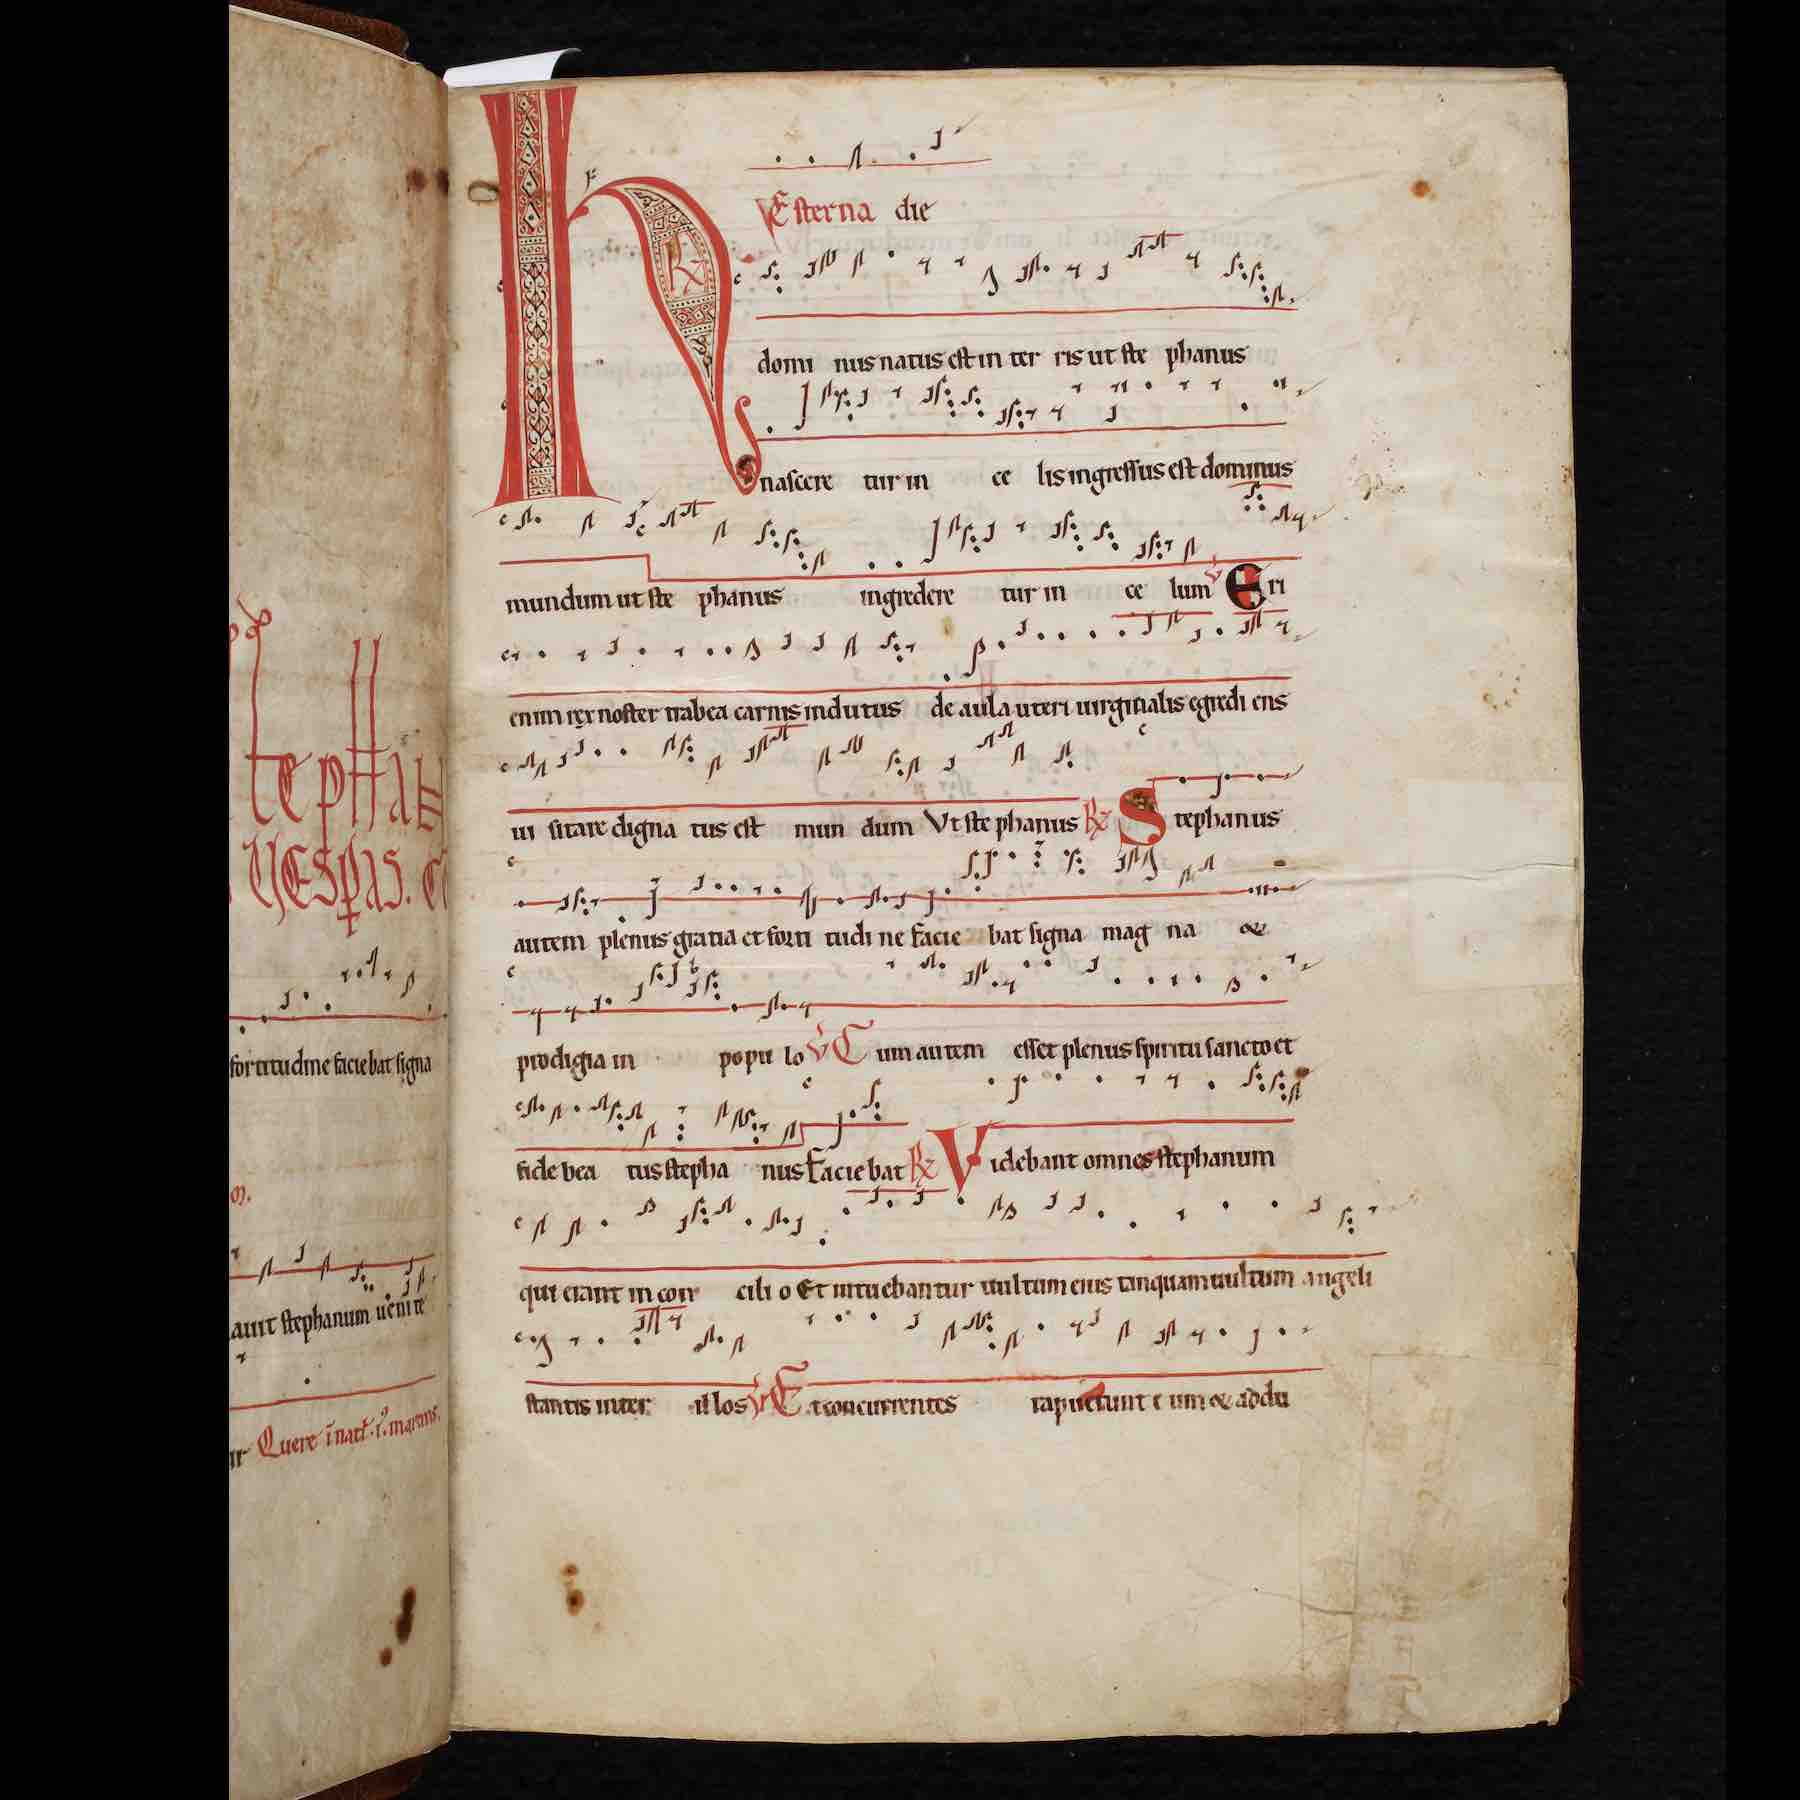 stepha
Vesp̄as.
fortitudine faciebat signa
aut stephanum uenite
Quere
H
℟
Esterna die
domi nus natus est in ter ris ut ste phanus
nascere tur in ce lis ingressus est dominus
mundum ut ste phanus ingredere tur in ce lum ℣ Eri
enim rex noster trabea carnis indutus de aula uteri uirginalis egredi ens
ui sitare digna tus est mun dum Vt ste phanus ℟ Stephanus
autem plenus gratia et forti tudi ne facie bat signa mag na &
prodigia in popu lo ℣ Cum autem esset plenus spiritu sancto et
fide bea tus stepha nus Faciebat ℟ Videbant omnes stephanum
qui erant in con cili o Et intuebantur uultum eius tanquam uultum angeli
stantis inter illos ℣ Et concurrentes rapuerunt eum & addu